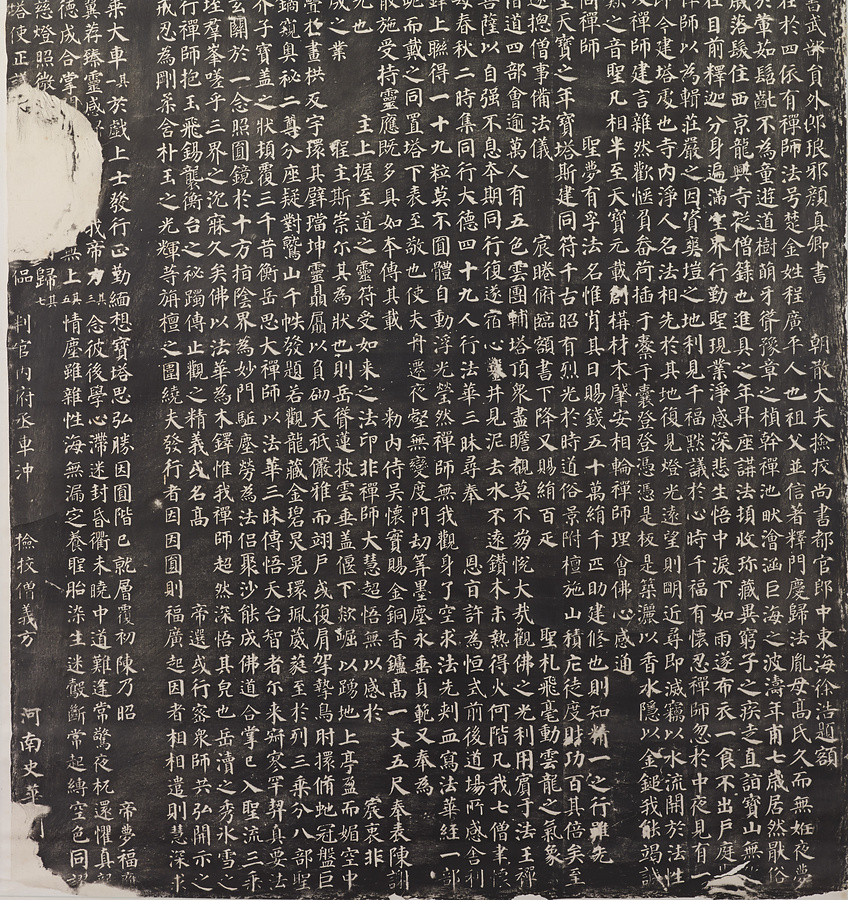 書武部員外郎琅邪顏真卿書 朝散大夫撿挍尚書都官郎中東海徐浩題額
在於四依有禪師法号楚金姓程廣平人也祖父並信著釋門慶歸法胤母高氏久而無姙夜夢
於葷茹髫齔不為童遊道樹萌牙聳豫章之楨幹禪池畎澮涵巨海之波濤年甫七歲居然猒俗
歲落髮住西京龍興寺從僧籙也進具之年昇座講法頓收珎藏異窮子之疾走直詣寶山無
在目前釋迦分身遍滿空界行勤聖現業淨感深悲生悟中淚下如雨遂布衣一食不出戶庭
禪師以為輯莊嚴之因資爽塏之地利見千福默議於心時千福有懷忍禪師忽於中夜見有一
即今建塔處也寺內淨人名法相先於其地復見燈光遠望則明近尋即滅竊以水流開於法性
及禪師建言雜然歡愜負畚荷插于橐于囊登登憑憑是板是築灑以香水隱以金鎚我能竭誠
歎之音聖凡相半至天寶元載創構材木肇安相輪禪師理會佛心感通
問禪師 聖夢有孚法名惟肖其日賜錢五十萬絹千匹助建修也則知精一之行雖先
皇天寶之年寶塔斯建同符千古昭有烈光於時道俗景附檀施山積庀徒度財功百其倍矣至
遂揔僧事備法儀 宸睠俯臨額書下降又賜絹百疋 聖札飛毫動雲龍之氣象
僧道四部會逾萬人有五色雲團輔塔頂眾盡瞻覩莫不崩悅大哉觀佛之光利用賓于法王禪
菩薩以自強不息本期同行復遂宿心鑿井見泥去水不遠鑽木未熱得火何階凡我七僧聿懷
每春秋二時集同行大德四十九人行法華三昧尋奉 恩旨許為恒式前後道場所感舍利
鋒上聯得一十九粒莫不圓體自動浮光瑩然禪師無我觀身了空求法先刺血寫法華經一部
跪而戴之同置塔下表至敬也使夫舟遷夜壑無變度門劫筭墨塵永垂貞範又奉為
散施受持靈應既多具如本傳其載 勑內侍吳懷實賜金銅香鑪高一丈五尺奉表陳謝
先也 主上握至道之靈符受如來之法印非禪師大慧超悟無以感於 宸衷非
成之業 聖主斯崇尒其為狀也則岳聳蓮披雲垂蓋偃下欻崛以踴地上亭盈而媚空中
疊於畫栱反宇環其璧璫坤靈贔屓以負砌天祇儼雅而翊戶或復肩挐摯鳥肘擐脩虵冠盤巨
鐍窺奧秘二尊分座疑對鷲山千帙發題若觀龍藏金碧炅晃環珮葳蕤至於列三乘分八部聖
芥子寶蓋之狀頓覆三千昔衡岳思大禪師以法華三昧傳悟天台智者尒來寂寥罕契真要法
玄關於一念照圓鏡於十方指陰界為妙門駈塵勞為法侶聚沙能成佛道合掌已入聖流三乘
垤群峯嗟乎三界之沉寐久矣佛以法華為木鐸惟我禪師超然深悟其皃也岳瀆之秀冰雪之
行禪師抱玉飛錫襲衡台之秘躅傳止觀之精義或名高 帝選或行密眾師共弘開示之
戒忍為剛柔含朴玉之光輝等旃檀之圍繞夫發行者因因圓則福廣起因者相相遣則慧深求
乘大車其一於戲上士發行正勤緬想寶塔思弘勝因圓階已就層覆初陳乃昭 帝夢福應
翼薦臻靈感 我帝力其三念彼後學心滯迷封昏衢未曉中道難逢常驚夜枕還懼真龍
德成合掌開 無上其五情塵雖雜性海無漏定養聖胎染生迷鷇斷常起縛空色同謬
慈燈照微 歸其七
塔使正議大 偘 判官內府丞車沖 撿挍僧義方 河南史華刻